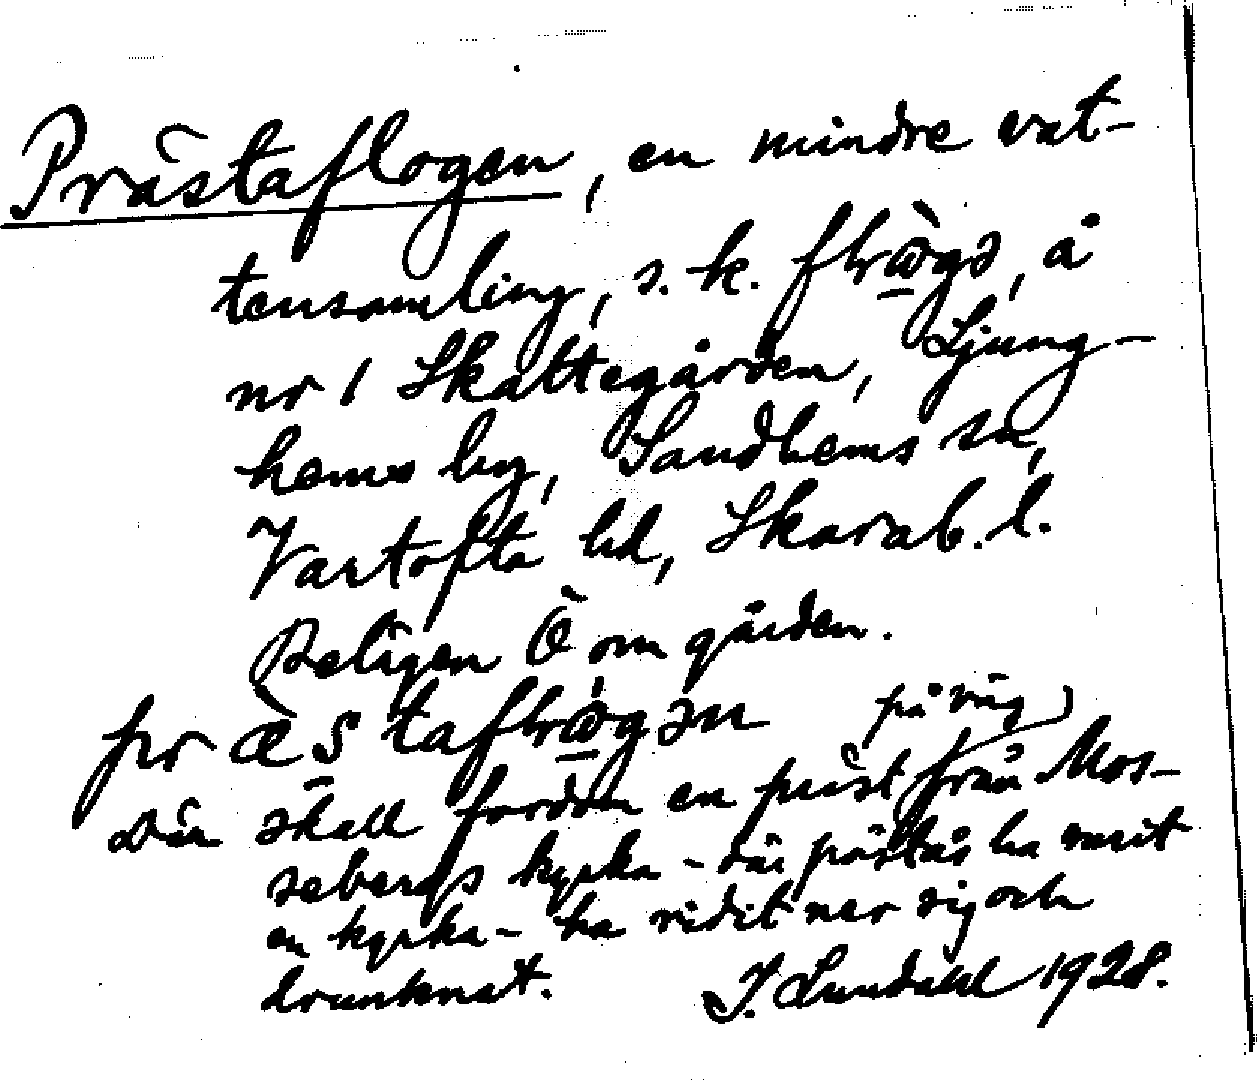 Prästaflogen, en mindre vat-
tensamling, s. k. flrɷ̀gə, å
nr 1 Skattegården, Ljung-
hems by, Sandhems sn,
Vartofta hd, Skarab. l.
Belägen Ö om gården.
præ̀staflrɷgən på väg
Där skall fordom en präst från Mos-
sebergs kyrka - där påstås ha varit
en kyrka - ha ridit ner sig och
drunknat. I. Lundahl 1928.